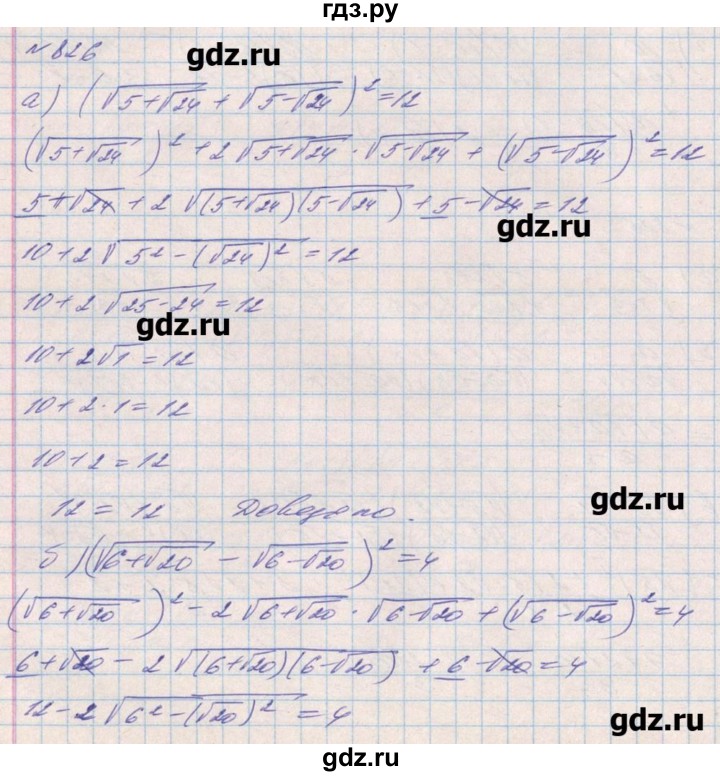 гдз.ру
№ 826
gdz.ru
а) (√(5+√24) + √(5-√24))² = 12
(√(5+√24))² + 2√(5+√24) · √(5-√24) + (√(5-√24))² = 12
5+√24 + 2√((5+√24)(5-√24)) + 5-√24 = 12
gdz.ru
10+2√(5²-(√24)²) = 12
10+2√(25-24) = 12
gdz.ru
10+2√1 = 12
10+2·1 = 12
10+2 = 12
gdz.ru
12 = 12 Доведено.
б) (√(6+√20) - √(6-√20))² = 4
(√(6+√20))² - 2√(6+√20) · √(6-√20) + (√(6-√20))² = 4
6+√20 - 2√((6+√20)(6-√20)) + 6-√20 = 4
12-2√(6²-(√20)²) = 4
gdz.ru
gdz.ru